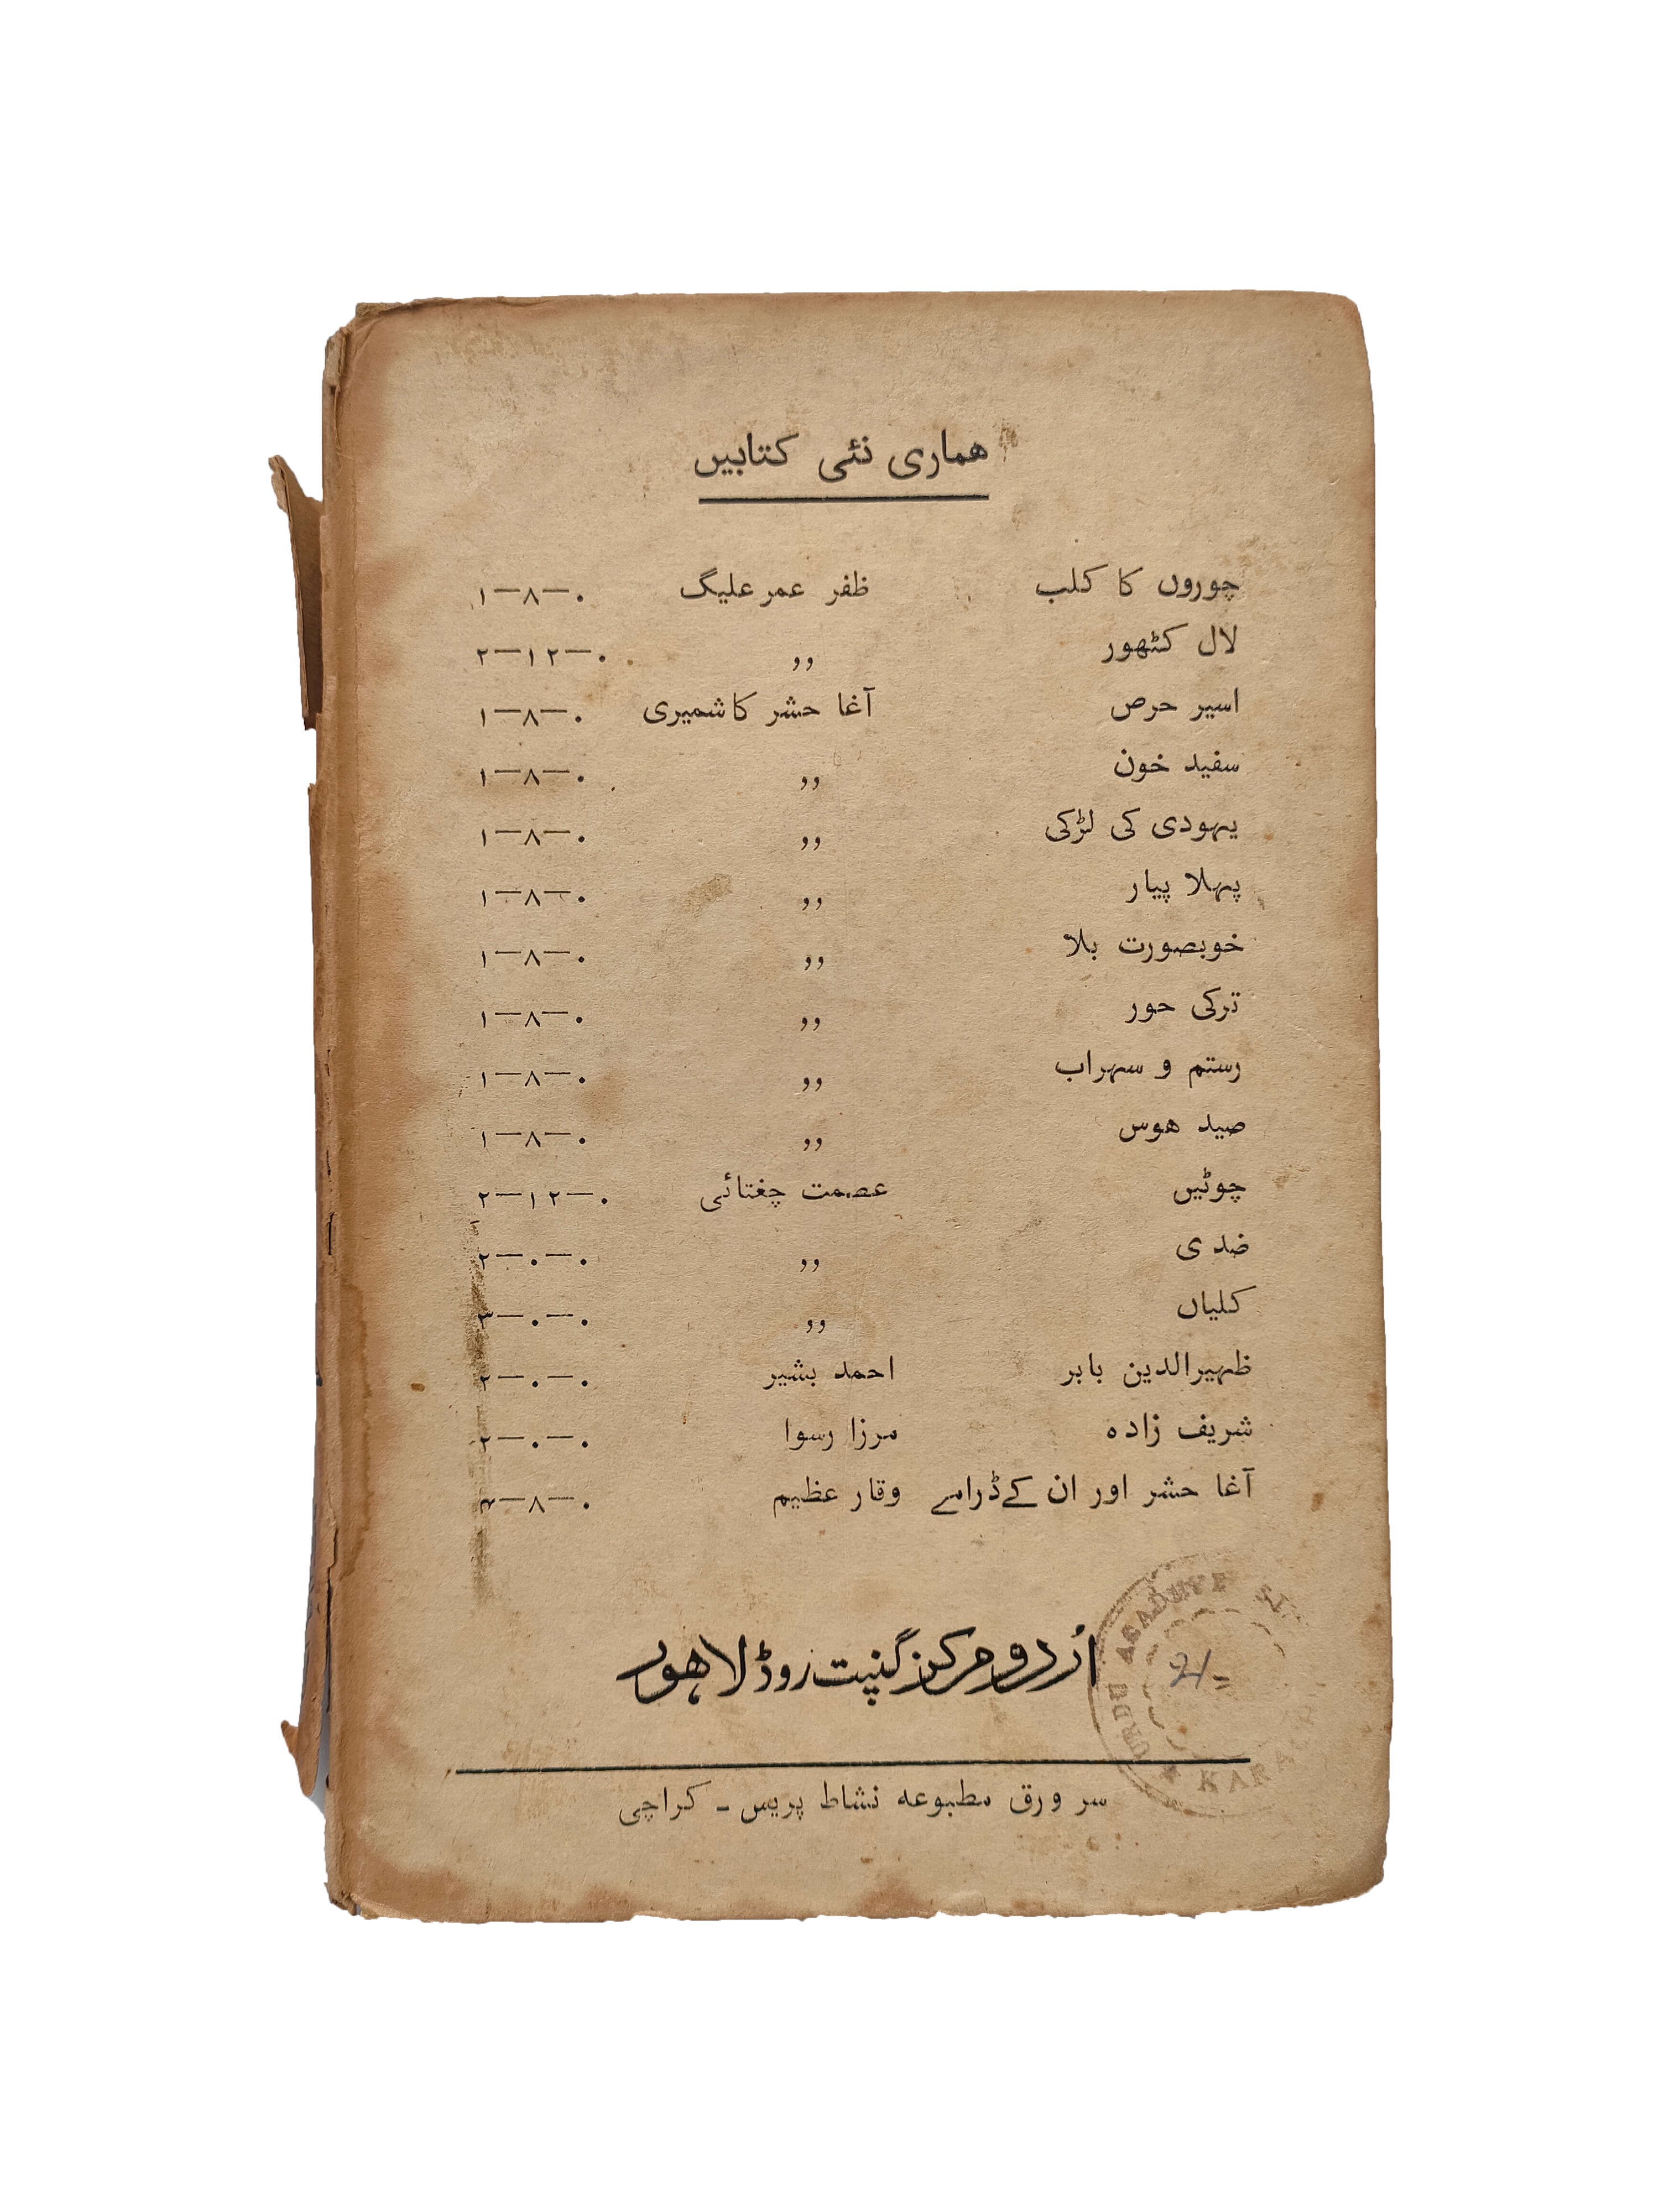 هماری نئی کتابیں
چوروں کا کلب ظفر عمر علیگ ۱—۸—۰
لال کٹھور ,, ۲—۱۲—۰
اسیر حرص آغا حشر کاشمیری ۱—۸—۰
سفید خون ,, ۱—۸—۰
یہودی کی لڑکی ,, ۱—۸—۰
پہلا پیار ,, ۱—۸—۰
خوبصورت بلا ,, ۱—۸—۰
ترکی حور ,, ۱—۸—۰
رستم و سہراب ,, ۱—۸—۰
صید هوس ,, ۱—۸—۰
چوٹیں عصمت چغتائی ۲—۱۲—۰
ضدی ,, ۲—۰—۰
کلیاں ,, ۳—۰—۰
ظہیرالدین بابر احمد بشیر ۲—۰—۰
شریف زاده مرزا رسوا ۲—۰—۰
آغا حشر اور ان کے ڈرامے وقار عظیم
اُردو مرکز گنپت روڈ لاهور
سر ورق مطبوعه نشاط پریس - کراچی
URDU ACADEMY
KARACHI
2/=